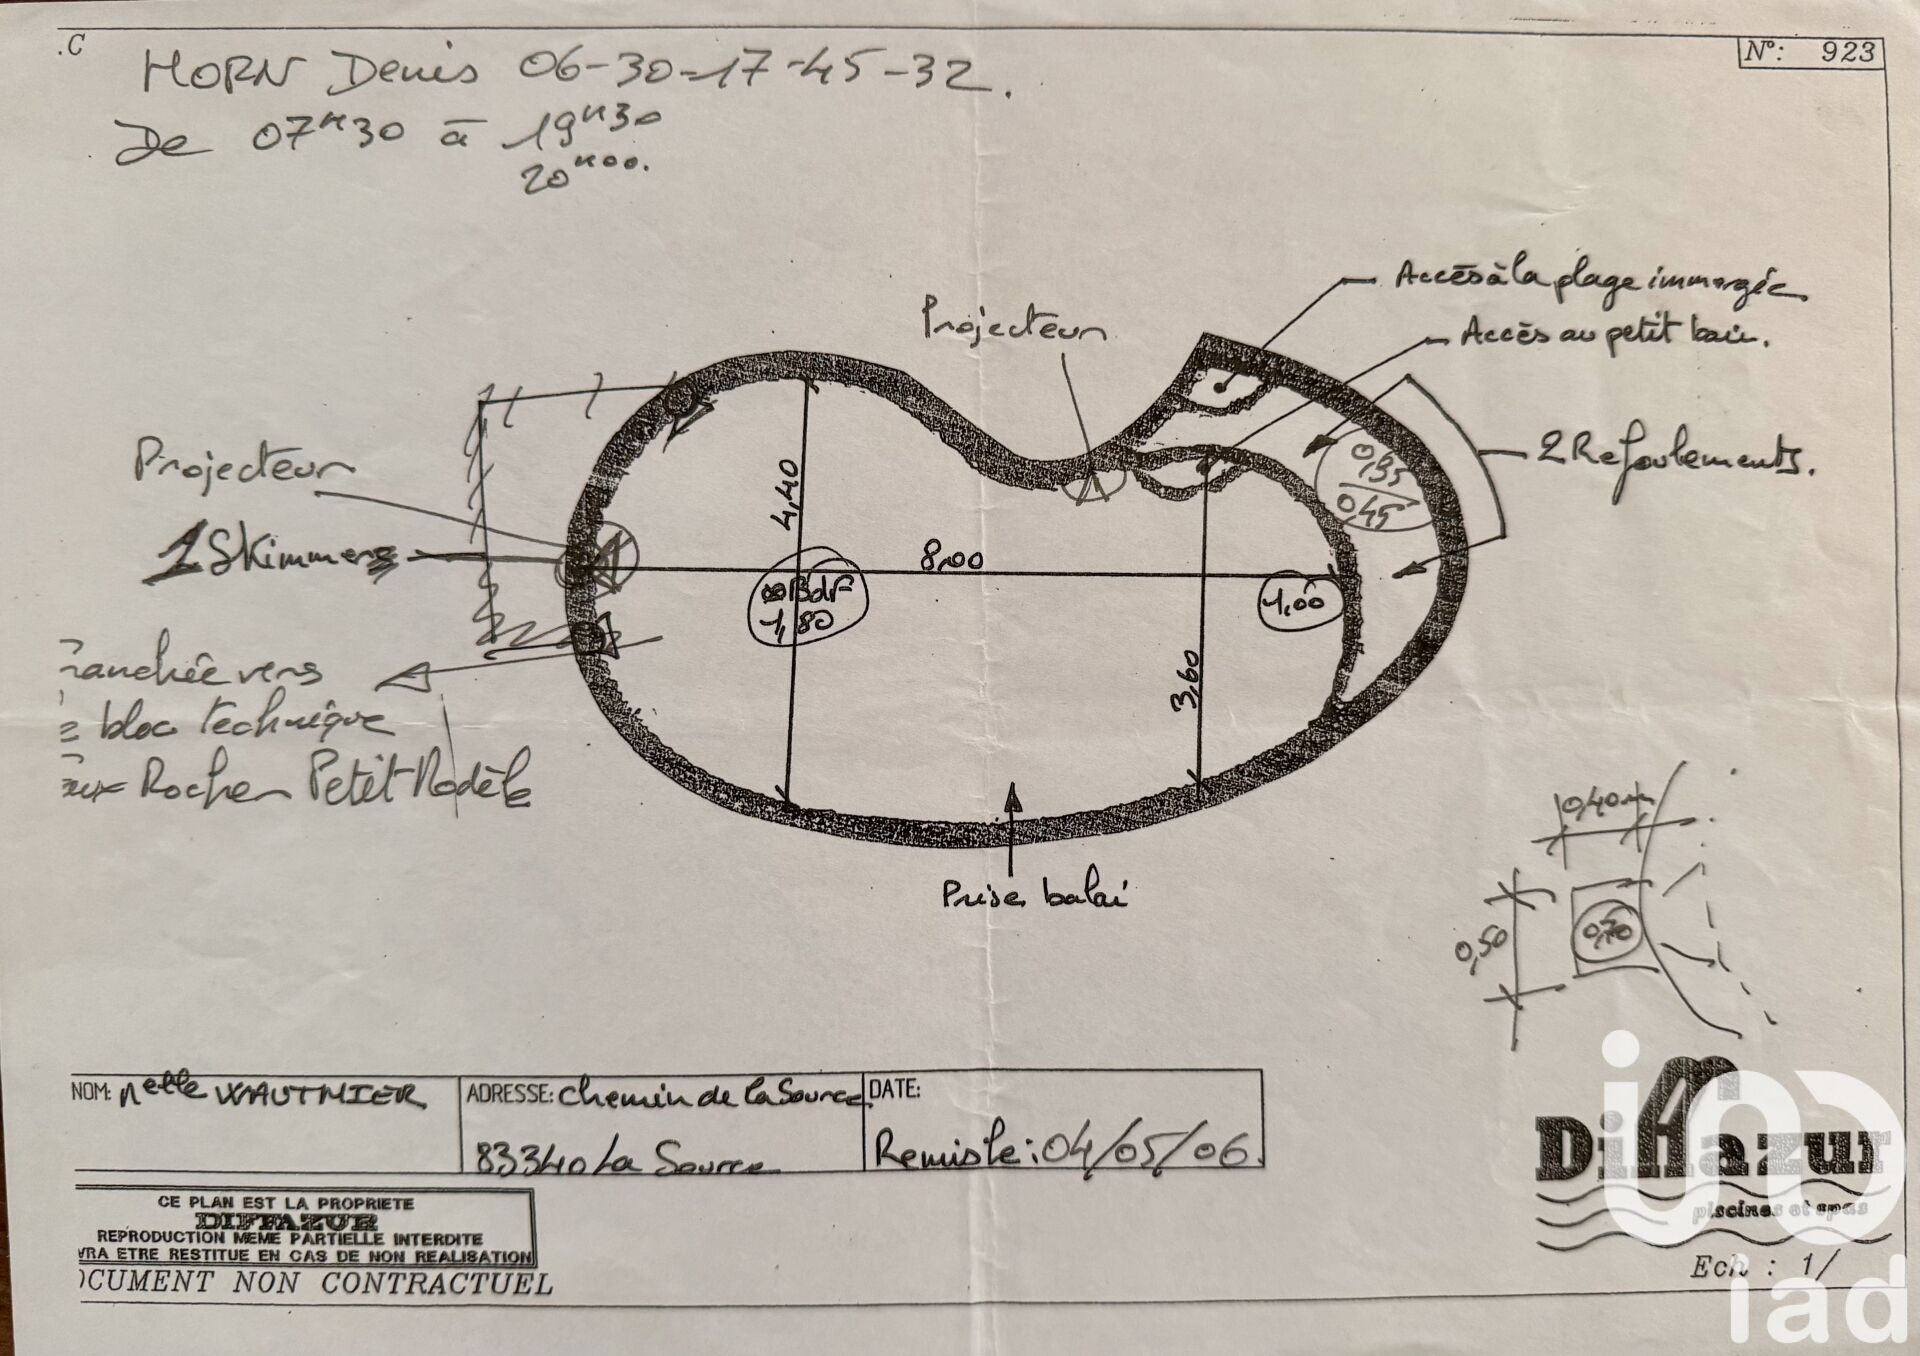 .C
N°: 923
HORN Denis 06-30-17-45-32.
De 07H30 à 19H30
20H00.
Accès à la plage immergée
Projecteur
Accès au petit bain.
2 Refoulements.
0,95
0,45
Projecteur
4,40
1 Skimmers
8,00
BdF
1,80
1,00
3,60
ranchée vers
bloc technique
Rocher Petit Modèle
0,40
Prise balai
0,50
NOM: WAUTHIER
ADRESSE: Chemin de la Source
83340 La Source
DATE:
Remis le: 04/05/06.
CE PLAN EST LA PROPRIETE
DIFFAZUR
REPRODUCTION MEME PARTIELLE INTERDITE
VRA ETRE RESTITUE EN CAS DE NON REALISATION
OCUMENT NON CONTRACTUEL
Diffazur
piscines et spas
Ech : 1/
iad